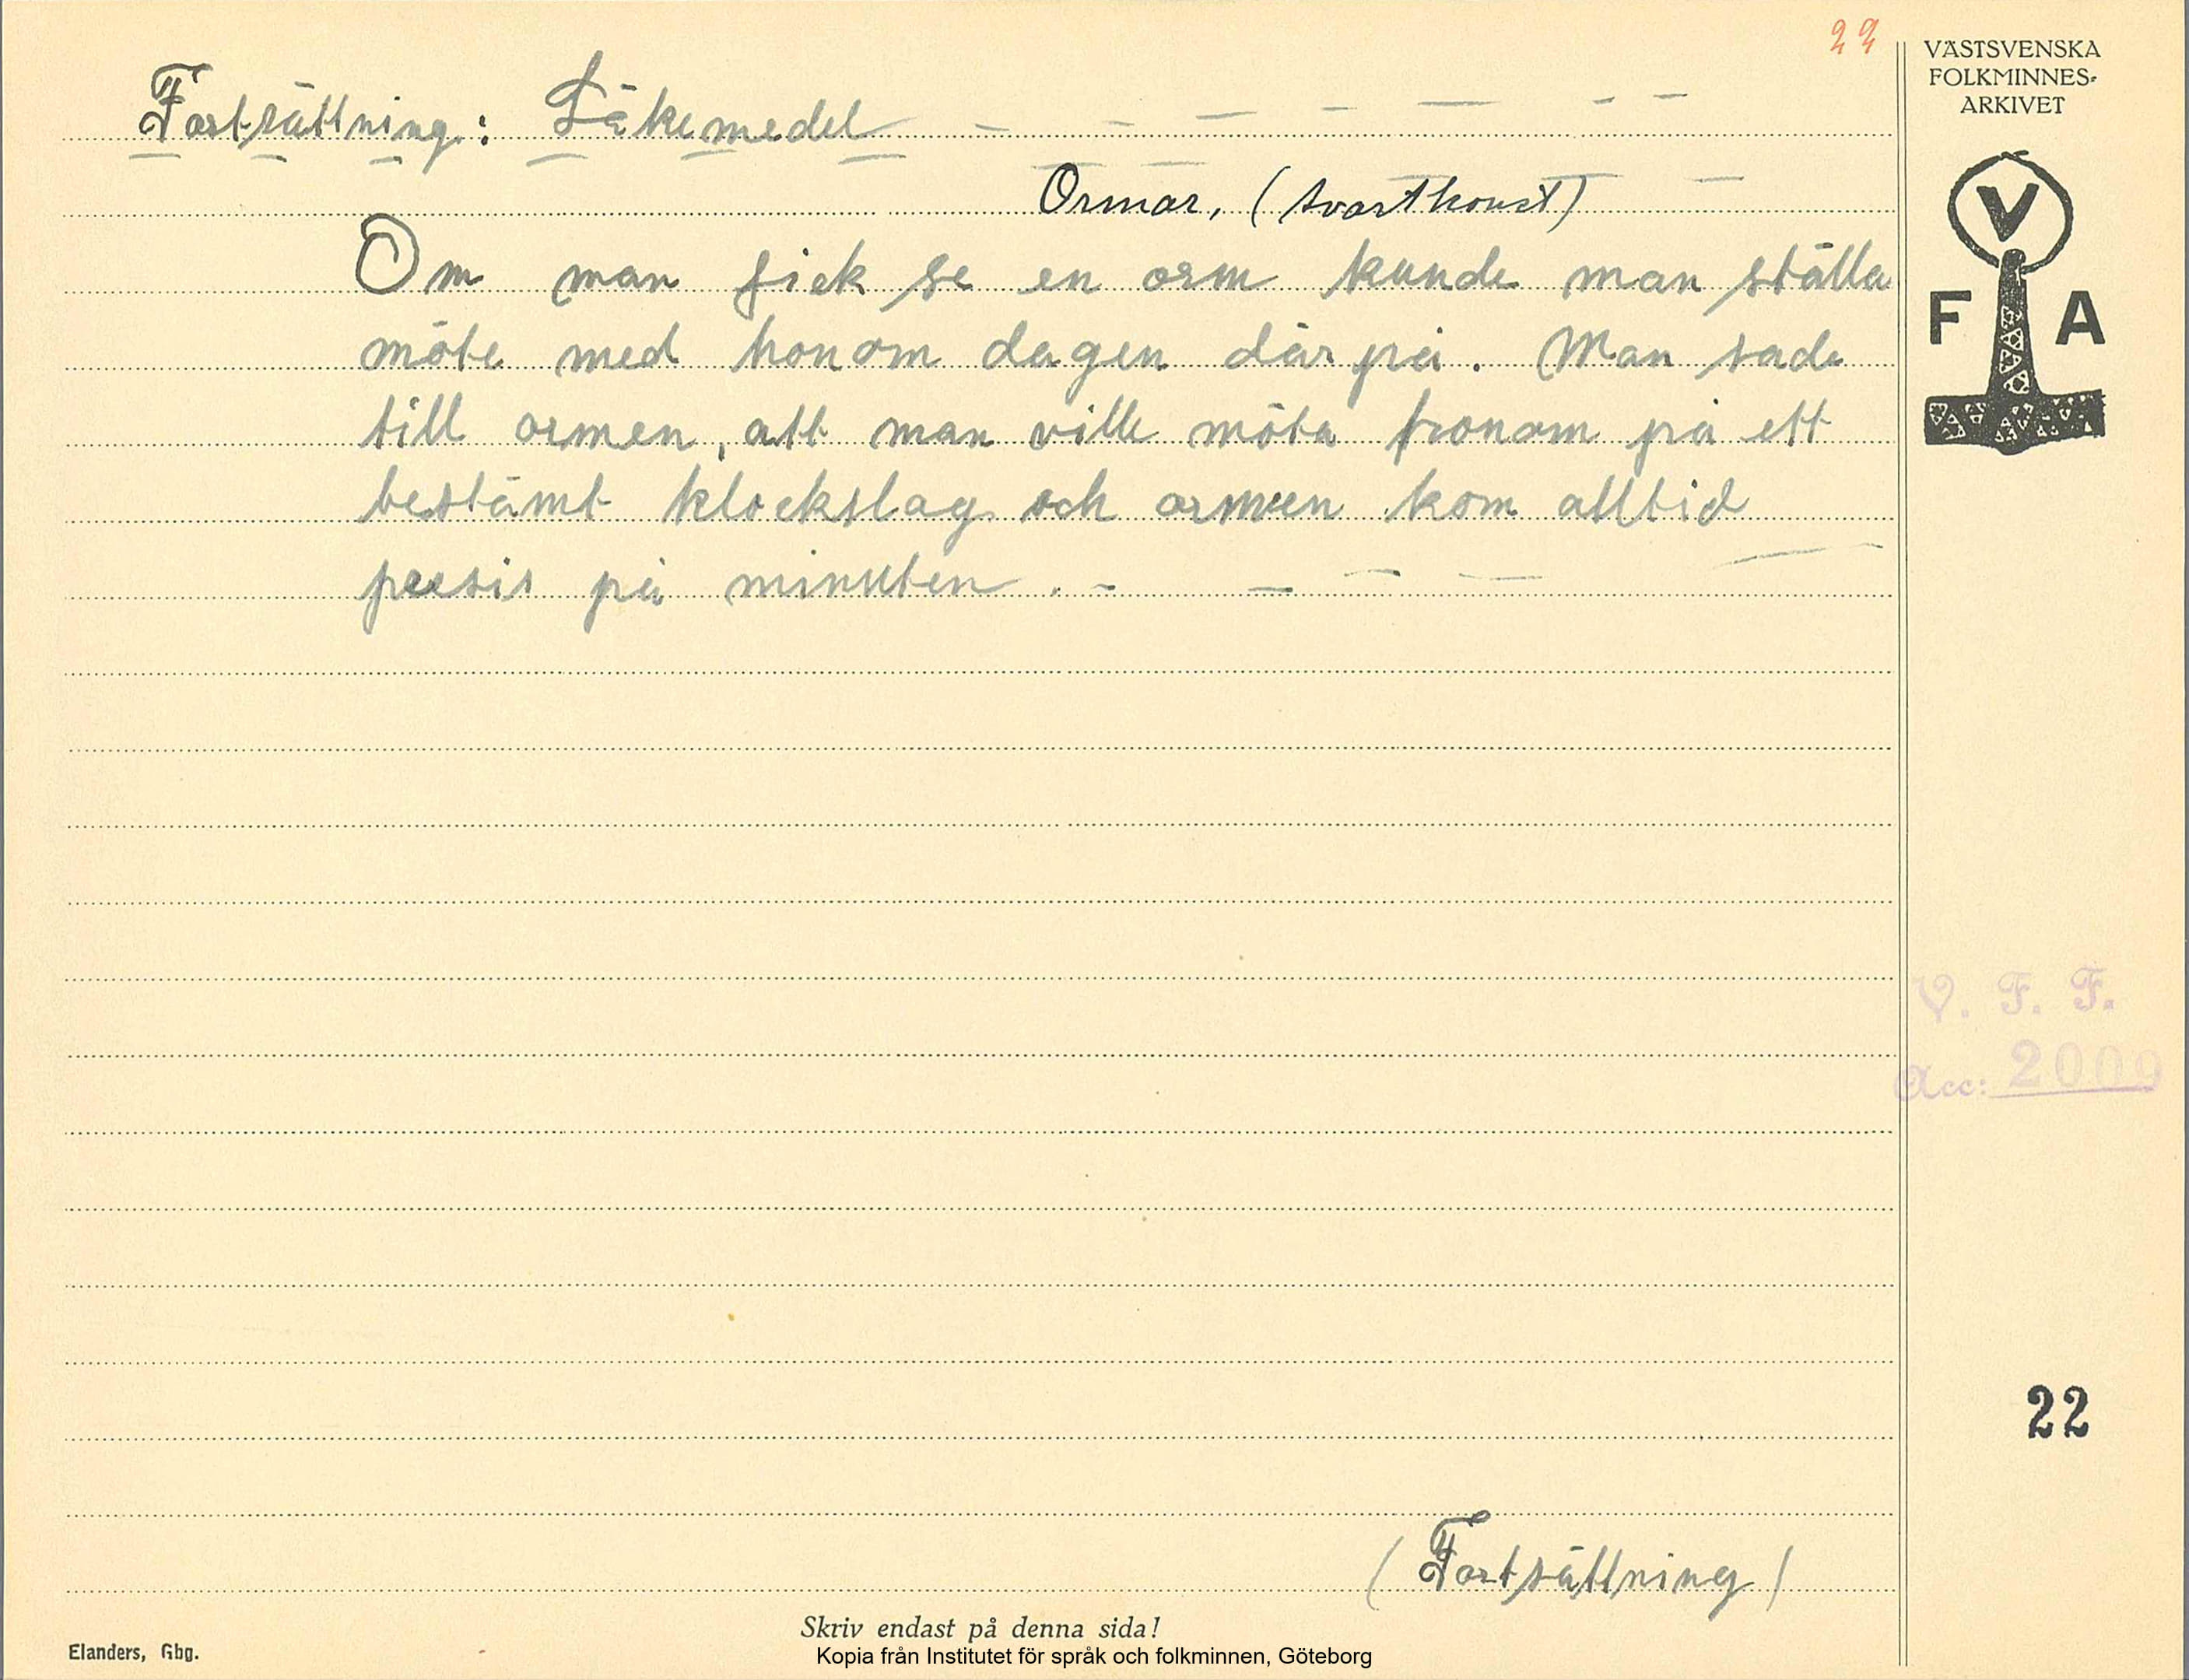 22
VÄSTSVENSKA
FOLKMINNES-
ARKIVET
Fortsättning: Läkemedel — — — — — — —
Ormar, (svartkonst) —
Om man fick se en orm kunde man ställa
möte med honom dagen därpå. Man sade
till ormen, att man ville möta honom på ett
bestämt klockslag och ormen kom alltid
presis på minuten. — — — — —
V
F A
V. F. F.
Acc: 2009
22
(Fortsättning)
Skriv endast på denna sida!
Elanders, Gbg.
Kopia från Institutet för språk och folkminnen, Göteborg